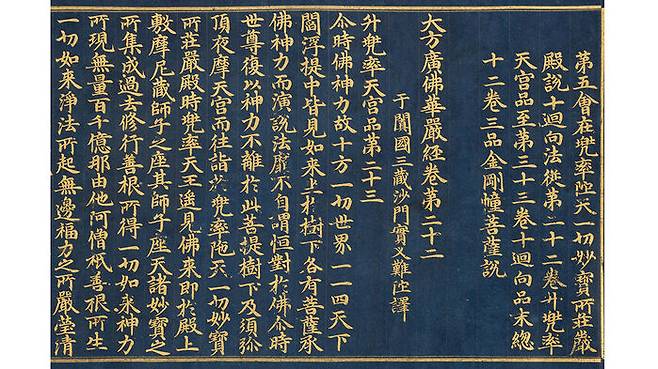 第五會在兜率陁天一切妙寶所莊嚴
殿說十迴向法從第二十二卷升兜率
天宮品至第三十三卷十迴向品末總
十二卷三品金剛幢菩薩說
大方廣佛華嚴經卷第二十二
于闐國三藏沙門實叉難陁譯
升兜率天宮品第二十三
尒時佛神力故十方一切世界一一四天下
閻浮提中皆見如來上於樹下各有菩薩承
佛神力而演說法靡不自謂恒對於佛尒時
世尊復以神力不離於此菩提樹下及須弥
頂夜摩天宮而往詣於兜率陁天一切妙寶
所莊嚴殿時兜率天王遥見佛來即於殿上
敷摩尼藏師子之座其師子座天諸妙寶之
所集成過去修行善根所得一切如來神力
所現無量百千億那由他阿僧祇善根所生
一切如來淨法所起無邊福力之所嚴瑩清